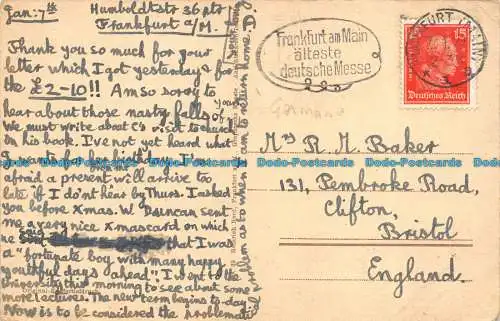 Jan: 7th
Humboldtstr 36 ptr
Frankfurt a/M.
Thank you so much for your
letter which I got yesterday & for the
£2-10!! Am so sorry to
hear about those nasty falls of yours
We must write about C's visit to church
in his book. I've not yet heard what
birthday I'm
afraid a present will arrive too
from me
late if I don't hear by Thurs. I asked
you before Xmas. Wm Duncan sent
me a very nice Xmascard on which
he said that I was
a "fortunate boy with many happy
youthful days ahead", I went to the
University this morning to see about some
more lectures. The new term begins to-day
Now is to be considered the problematical
problem as to when I am to return home. D.
Frankfurt am Main
älteste
deutsche Messe
FRANKFURT (MAIN)
15
Deutsches Reich
Germany
Mrs R. M. Baker
131, Pembroke Road,
Clifton,
Bristol
England.
Bodo-Postcards.com